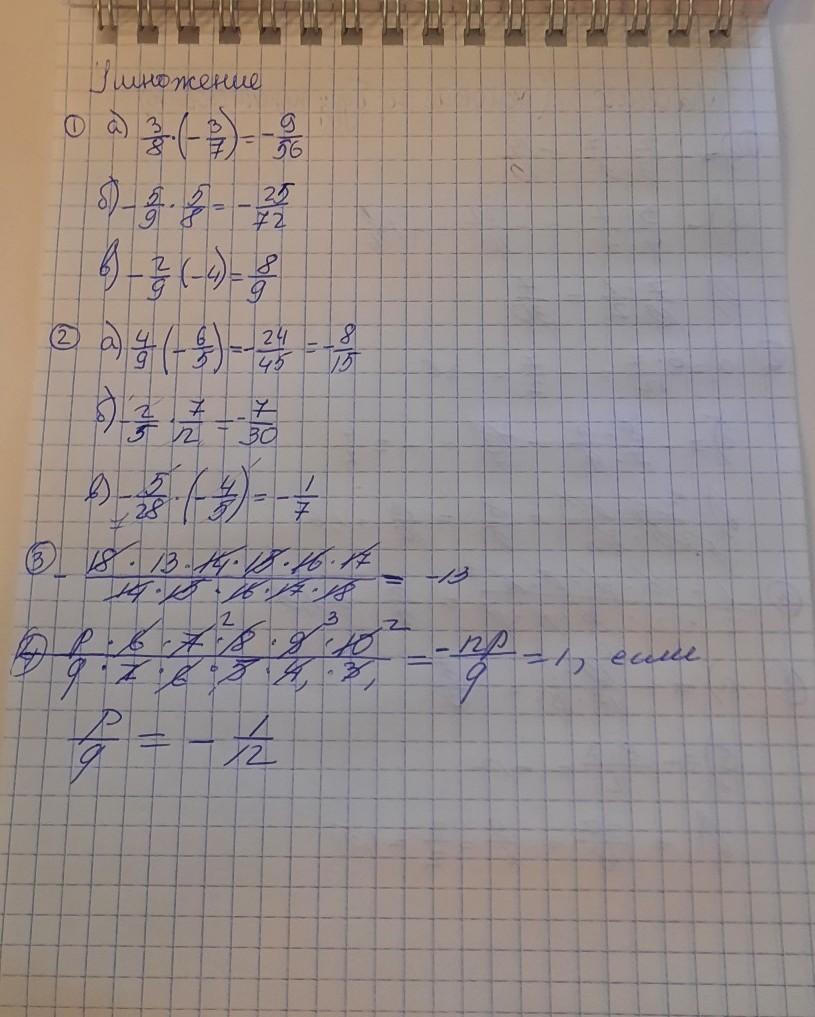 Умножение
① а) 3/8 · (- 3/7) = - 9/56
б) - 5/9 · 5/8 = - 25/72
в) - 2/9 (-4) = 8/9
② а) 4/9 (- 6/5) = - 24/45 = - 8/15
б) - 2/5 · 7/12 = - 7/30
в) - 5/28 · (- 4/5) = - 1/7
7
③ - 18 · 13 · 14 · 15 · 16 · 17 / 14 · 15 · 16 · 17 · 18 = -13
④ - p · 6 · 7 · 8 · 9 · 10 / q · 7 · 6 · 5 · 4 · 3 = - 12p/q = 1, если
2 3 2
1 1
p/q = - 1/12